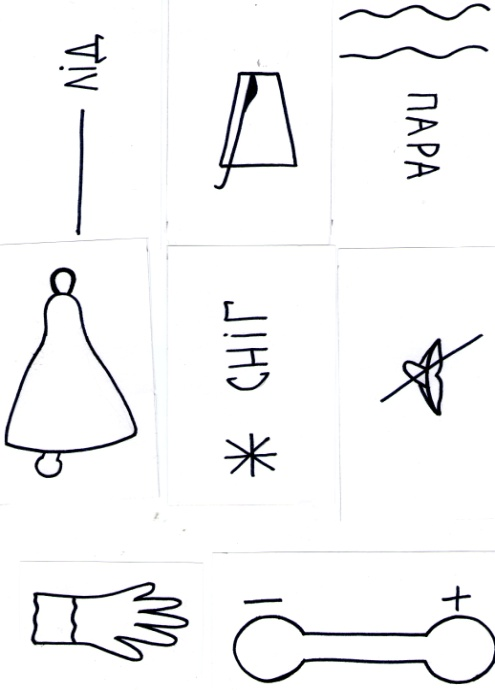 ЛіД
ПАРА
СНіГ
− +